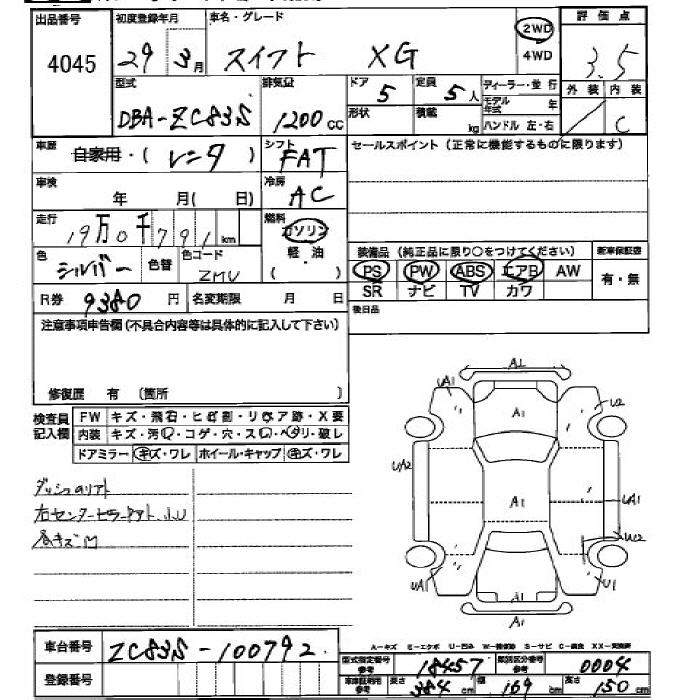 出品番号 初度登録年月 車名・グレード 評価点
4045 29年3月 スイフト XG 2WD 4WD 3.5
外装 内装 C
型式 排気量 ドア 定員 ディーラー・並行
DBA-ZC83S 1200cc 5 5人 モデル年式 年
形状 積載 kg ハンドル 左・右
車歴 自家用・(レンタ) シフト FAT セールスポイント(正常に機能するものに限ります)
車検 年 月(日) 冷房 AC
走行 19万0千791km 燃料 ガソリン
軽・油
( )
色 シルバー 色替 色コード ZMU
装備品(純正品に限り○をつけてください) 新車保証書
PS PW ABS エアB AW 有・無
SR ナビ TV カワ
R券 9380円 名変期限 月 日 後日品
注意事項申告欄(不具合内容等は具体的に記入して下さい)
修復歴 有 〔箇所 〕
検査員記入欄 FW キズ・飛石・ヒビ割・リペア跡・X要
内装 キズ・汚レ・コゲ・穴・スレ・ヘタリ・破レ
ドアミラー キズ・ワレ ホイール・キャップ キズ・ワレ
A1
UA1 U2
A1
UA2
A1 UA1
UA1 A1 U1
ダッシュのリアト
小U
キズ M
A-キズ E-エクボ U-凹み W-補修跡 S-サビ C-腐食 XX-交換済
車台番号 ZC83S-100792 型式指定番号 参考 18457 類別区分番号 参考 0004
登録番号 長さ 384cm 幅 169cm 高さ 150cm